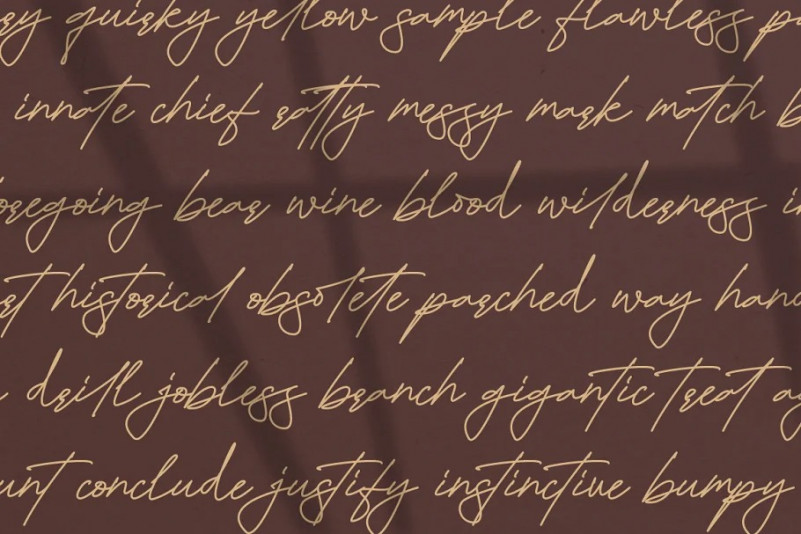 quirky yellow sample flawless
innate chief ratty messy mark match b
oregoing bear wine blood wilderness in
historical obsolete parched way hand
drill jobless branch gigantic treat ag
unt conclude justify instinctive bumpy